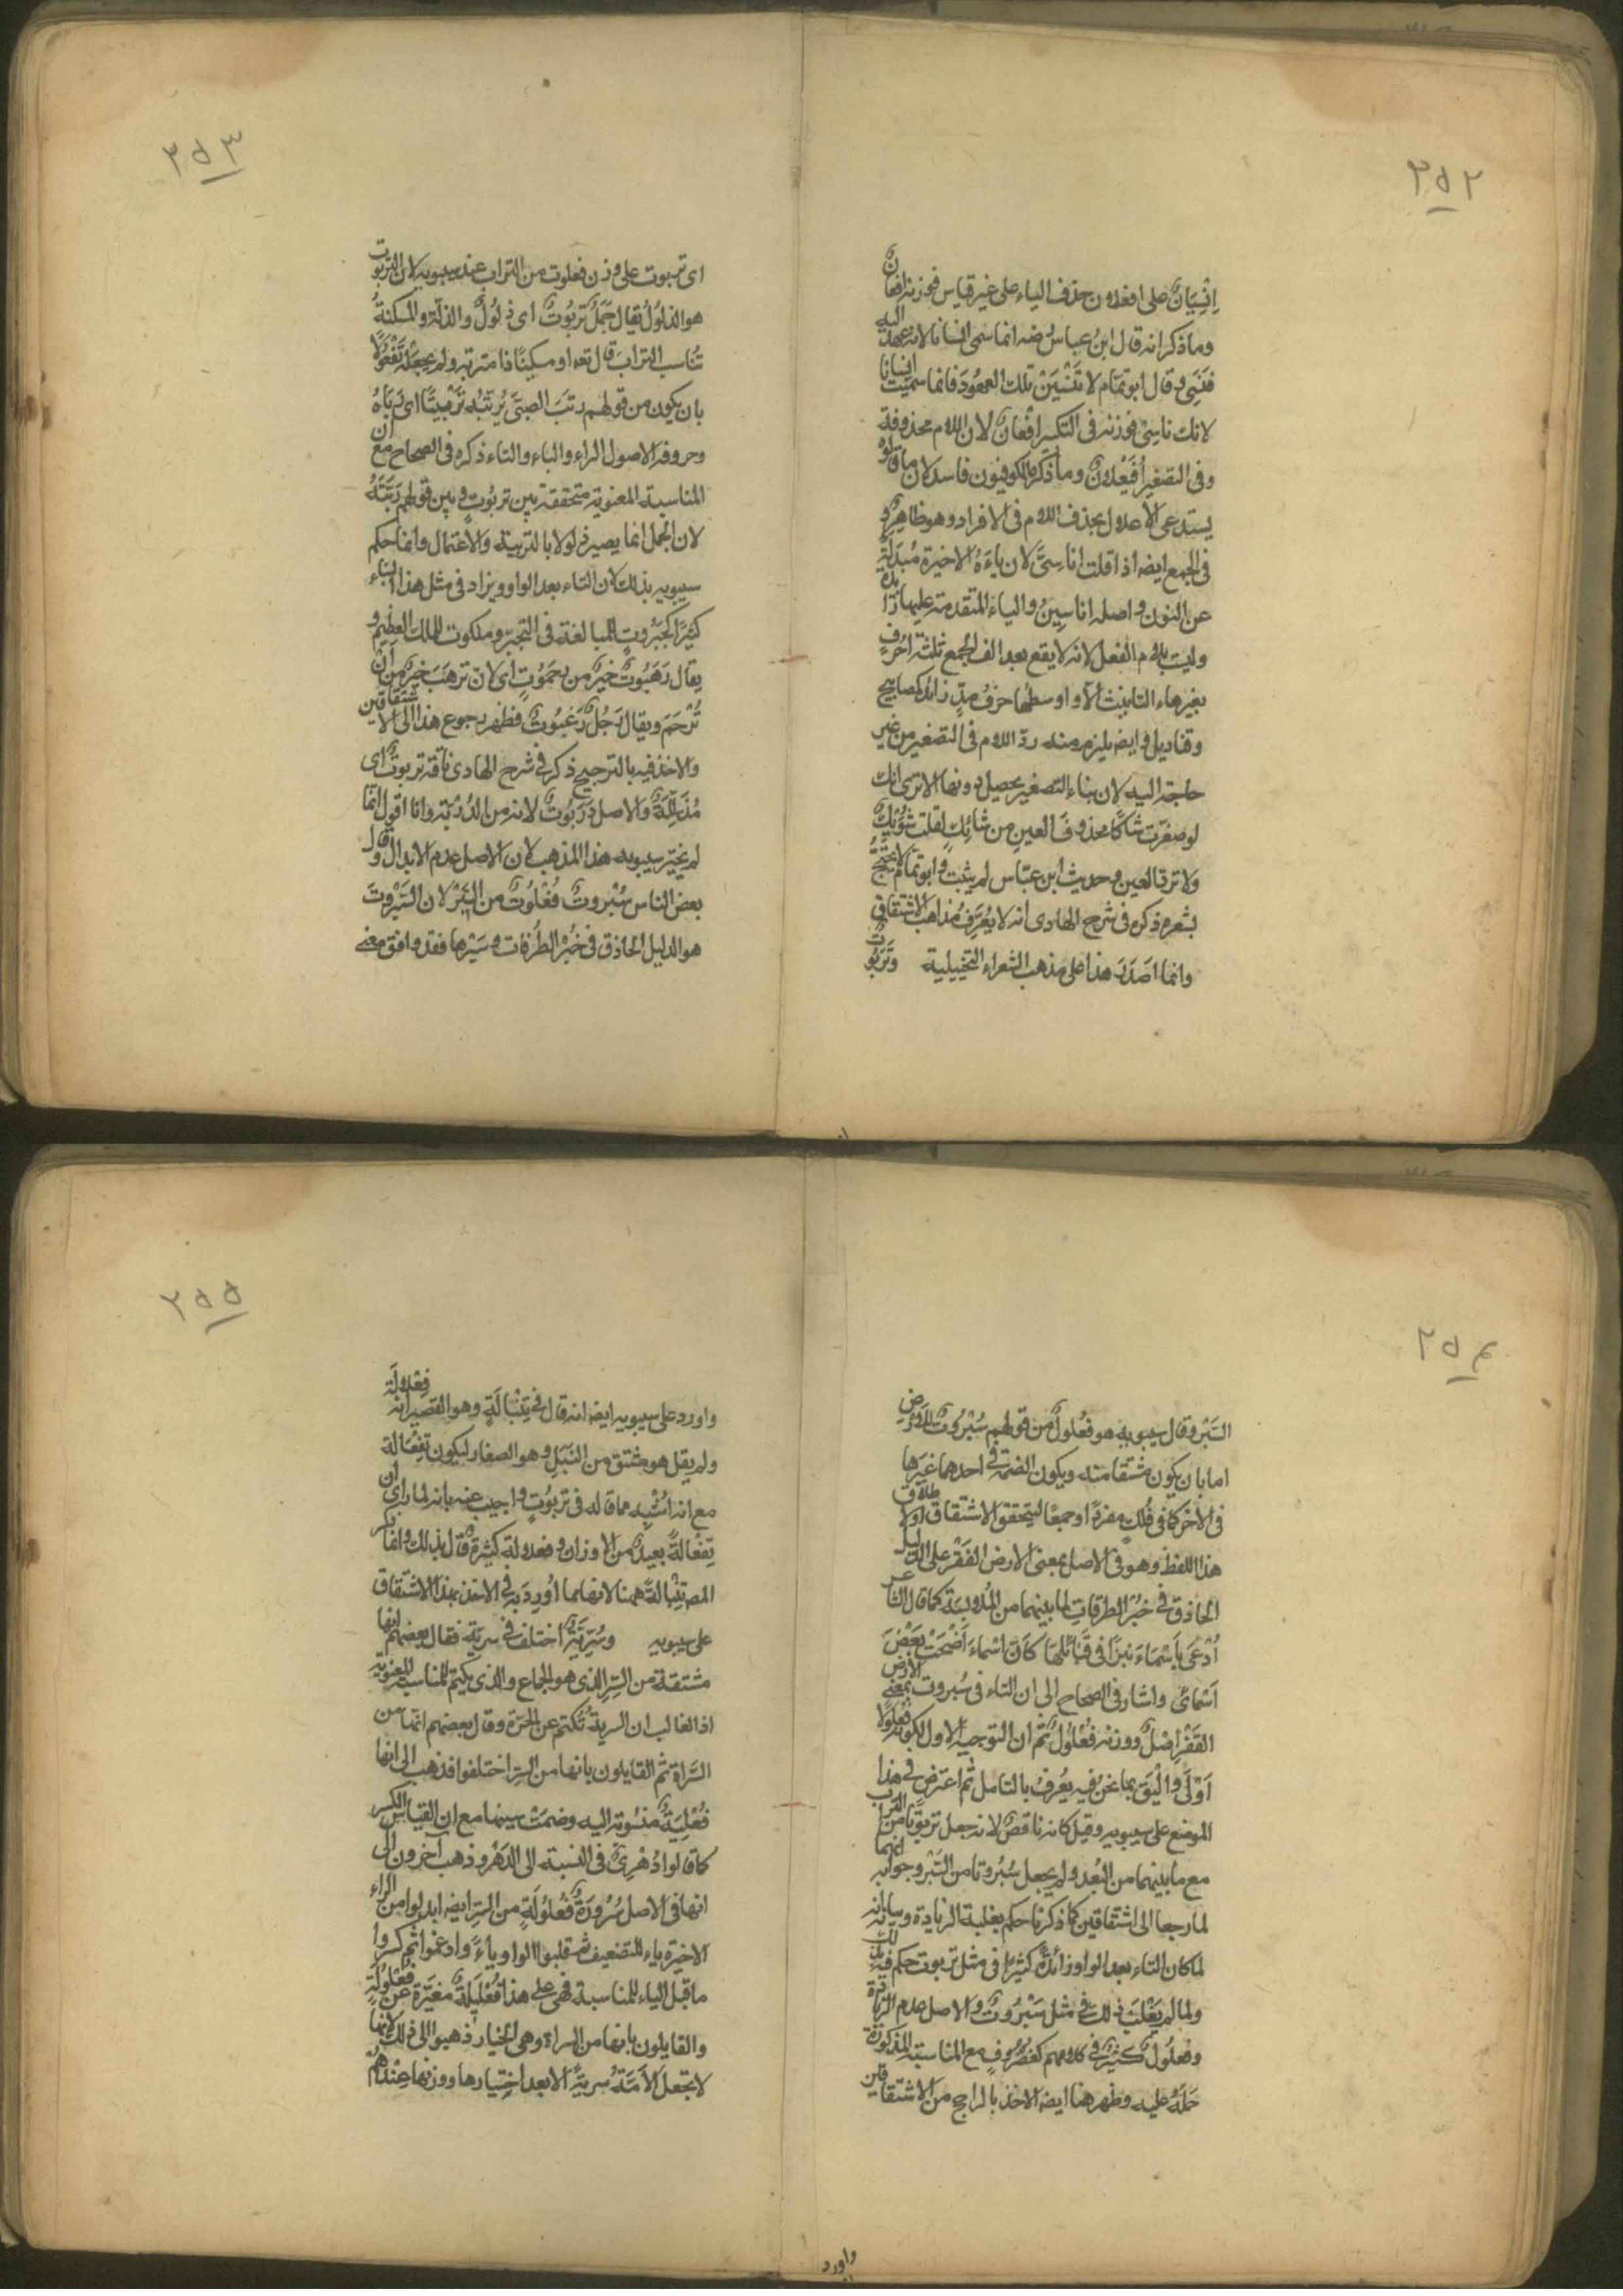 ٢٥٢
اِنْسِيَانٌ على افعلان حذف الياء على غير قياس فوزنه افعان
وما ذكر انه قال ابن عباس رضه انما سمى انسانا لانه عهد اليه
فنسى وقال ابو تمام لا تَنْسَيَنْ تلك العهودَ فانما سميت انسانا
لانك ناسِىْ فوزنه فى التكبير افْعان لان اللام محذوفة
وفى التصغير اُفَيْعلان وما ذكره الكوفيون فاسد لان ما قالوه
يستدعى الاعلال بحذف اللام فى الافراد وهو ظاهر و
فى الجمع ايضه اذا قلت اناسِىَّ لان ياءَهُ الاخيرة مُبدَلَةٌ
عن النون واصله اناسِينُ والياء المتقدمة عليها زائدة
وليت بلام الفعل لانه لا يقع بعد الف الجمع ثلثة احرُفٍ
بغير هاء التانيث الّا واوسطها حَرْفُ مدٍّ زائد كمصابيح
وقناديل وايضه يلزم منه ردّ اللام فى التصغير من غير
حاجة اليه لان بناء التصغير يحصل دونها الا ترى انك
لو صغّرت شاكًا محذوفَ العين من شائِكٍ لقلت شُوَيْكٌ
ولا تردّ العين وحديث ابن عبّاس لم يثبت وابو تمّام لا يحتجّ
بشعره ذكره فى شرح الهادى انه لا يُعَرِّفُ مذاهب الاشتقاق
وانما اصدَرَ هذا على مذهب الشعراء التخييلية وتَرَبُوتٌ
٢٥٣
اى تربوت على وزن فعلوت من التراب عند سيبويه لان التربوت
هو الذلول يُقال جَمَلٌ تربُوتٌ اى ذلُولٌ والذلّة والمسكنةُ
تُناسب الترابَ قال تعه او مسكينًا ذا متربة ولم يجعلْه تَفْعُولًا
بان يكون من قولهم ربَتَ الصبىَّ يُربّتُه تَرْبيتًا اى ربّاهُ
وحروفه الاصول الراء والباء والتاء ذكره فى الصحاح مع ان
المناسبة المعنوية متحققة بين تربُوتٍ وبين قولهم ربّتَهُ
لان الجمل انما يصير ذلولا بالتربية والاعتمال وانما حكم
سيبويه بذلك لان التاء بعد الواو ويزاد فى مثل هذا البناء
كثيرًا كجبَرُوتٍ للمبالغة فى التجبّر وملكوت للملك العظيم و
يقال رَهَبُوتٌ خيرٌ من رحَمُوتٍ اى لان ترهَبَ خيرٌ من اَنْ
تُرْحَمَ ويقال رَجُلٌ رَغبُوتٌ فظهر رجوع هذا الى الاشتقاقين
والاخذ فيه بالترجيح ذكر فى شرح الهادى ناقة تربوتٌ اى
مُذَلَّلَةٌ والاصل دَرَبُوتٌ لانه من الدُرْبَة وانا اقول انّما
لم يختر سيبويه هذا المذهب لان الاصل عدم الابدال وقال
بعض الناس سُبْروتٌ فُعْلُوتٌ من السَبْر لان السَبْروتَ
هو الدليل الحاذق فى خُبْر الطُرُقات وسَبْرها فقد وافق معنى
٢٥٤
السَبْر وقال سيبويه هو فعُلولٌ من قولهم سُبْرُوتٌ للارض
اما بان يكون مشتقا منه ويكون الضمة فى احدهما غيرَها
فى الاخر كما فى فُلْكٍ مفردًا وجمعًا ليتحقق الاشتقاق او لاطلاق
هذا اللفظ وهو فى الاصل بمعنى الارض القَفْر على الدليل
الحاذق فى خُبْر الطرقات لما بينهما من المُلابسَة كما قال الشاعر
اُدْعَى بِاَسْماءَ نَبْزًا فى قَبَائلهَا كَانّ اسْماءَ اَضْحَتْ بَعْضَ
اَسْمائى واشار فى الصحاح الى ان التاء فى سُبروت بمعنى الارض
القَفْر اصْلٌ ووزنه فُعْلُولٌ ثمّ ان التوجيه الاول لكونه فُعْلُولًا
اَوْلىٰ واَلْيَقَ بما نحن فيه يُعرفُ بالتامل ثم اعترض فى هذا
الموضع على سيبويه وقيل كانه ناقصٌ لانه جعل تربوتًا من التراب
مع ما بينهما من البُعد ولم يجعل سُبُروتا من السَبْر وجوابه انهما
لما رجعا الى اشتقاقين كما ذكرنا حكم بغلبة الزيادة وبيانه انه
لما كان التاء بعد الواو زائدةً كثيرًا فى مثل تربوت حكم فيه بذلك
ولما لم يَغْلبْ ذلك فى مثل سَبْرُوتٌ والاصل عدم الزيادة
وفعلُولٌ كثيرٌ فى كلامهم كغضرُوف مع المناسبة المذكورة
حَمَلَهُ عليه وظهر هنا ايضه الاخذ بالراجح من الاشتقاقين
واورد
٢٥٥
واورد على سيبويه ايضه انه قال فى تِنْبَالَةٍ وهو القصير انه فِعْلالَة
ولم يقل هو مشتق من النَبَلِ وهو الصغار ليكون تِفْعَالة
مع انه اشْبه مما قاله فى تربُوتٍ واجيب عنه بانه لما راى ان
تِفْعَالةً بعيدٌ من الاوزان وفعلالة كثيرةٌ قال بذلك وانما ذكر
المصه تِنْبالةً ههنا لانها مما اُورِدَ به فى الاخذ بهذا الاشتقاق
على سيبويه وسُرِّيَّة اختلف فى سرية فقال بعضهم انها
مشتقة من السِر الذى هو الجماع والذى يكتم للمناسبة المعنوية
اذ الغالب ان السرية تُكْتم عن الحرّة وقال بعضهم انها من
السَّراة ثم القايلون بانها من السِر اختلفوا فذهب الى انها
فُعْلِيّةٌ منسُوبة اليه وضمت سينها مع ان القياس الكسر
كما قالوا دُهْرِىٌّ فى النسبة الى الدَهْر وذهب آخرون الى
انها فى الاصل سُرُّورَةٌ فُعْلُولَةٍ من السِر ايضه ابدلوا من الراء
الاخيرة ياء للتضعيف ثم قلبوا الواو ياءً وادغموا ثم كسروا
ما قبل الياء للمناسبة فهى على هذا فُعْلِيلَةٌ مغيَّرة عن فُعْلُولَةٍ
والقايلون بانها من السراة وهى الخيار ذهبوا الى ذلك لانها
لا تجعل الاَمَةُ سريةً الا بعد اختيارها ووزنها عِنْدهُمْ